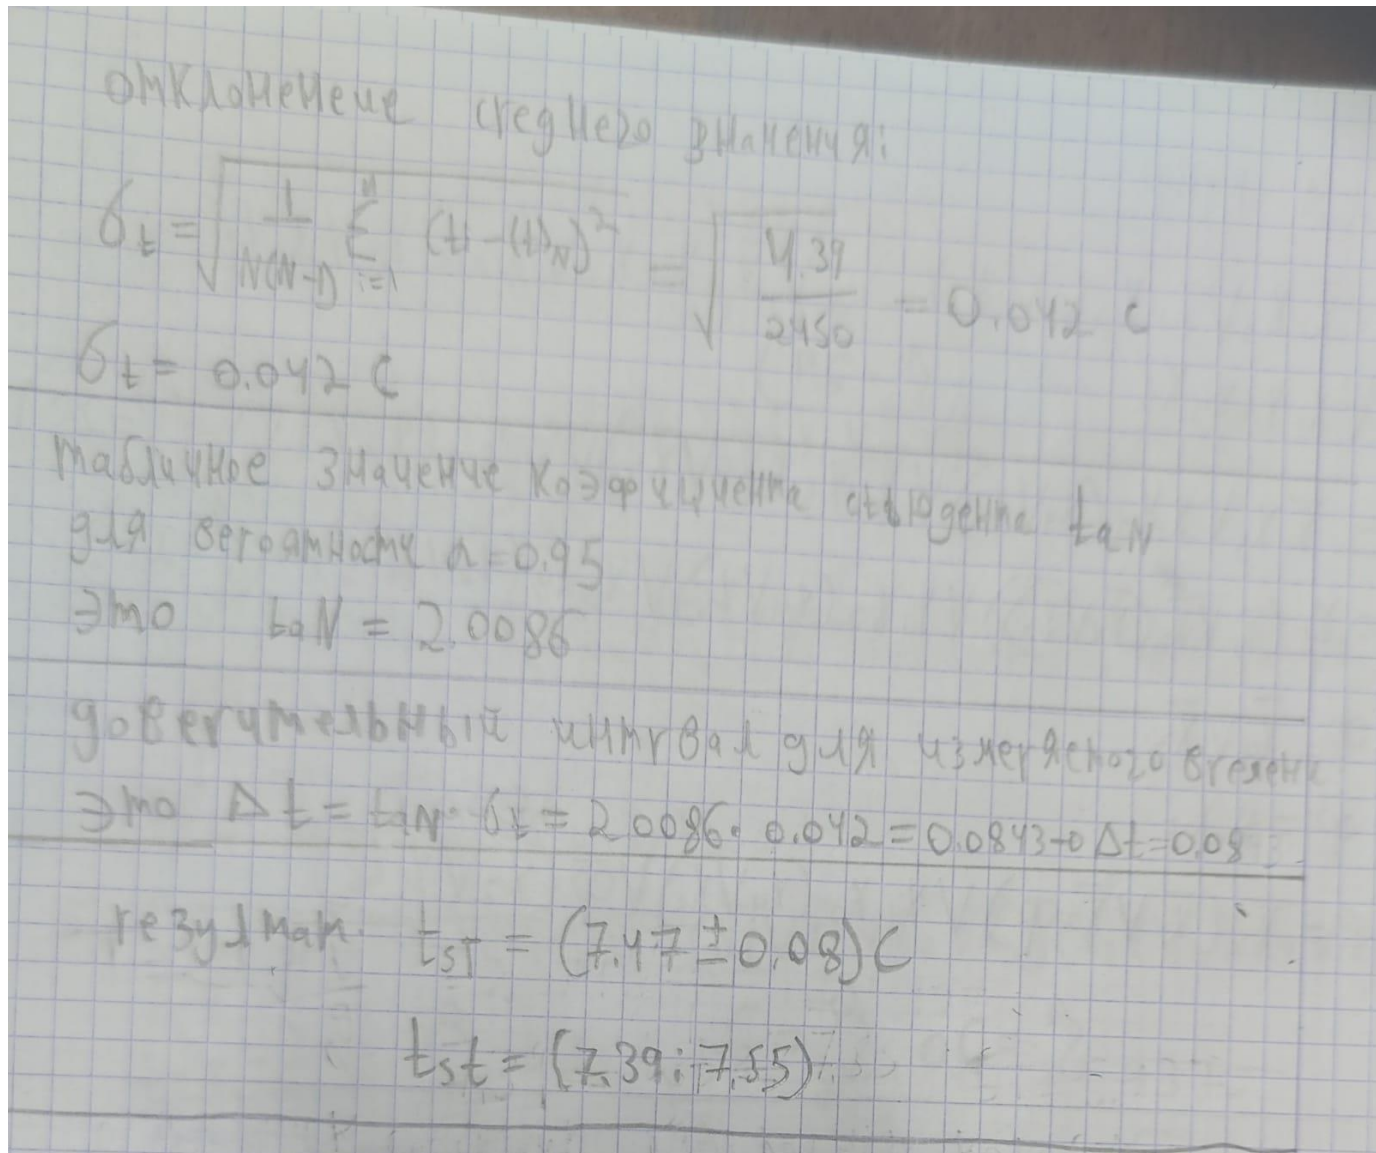 отклоненеие среднего значения:
σt = √(1/(N(N-1)) Σ i=1 n (ti - ⟨t⟩N)²) = √(4.39/2450) = 0.042 с
σt = 0.042 с
табличное значение коэффициента стьюдента taN
для вероятности α = 0.95
это taN = 2.0086
доверительный интрвал для измеряемого времени
это Δt = taN · σt = 2.0086 · 0.042 = 0.0843 → Δt = 0.08
резултат tST = (7.47 ± 0.08) с
tst = (7.39; 7.55)